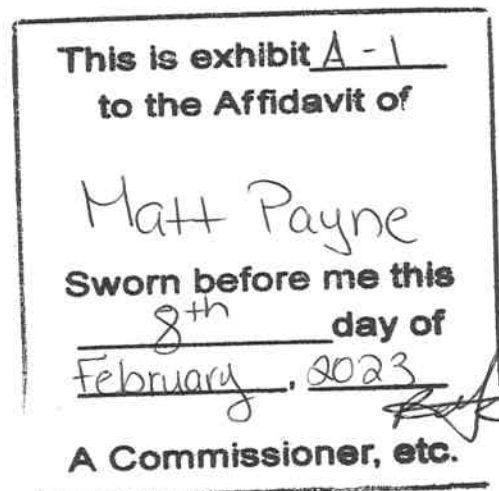 This is exhibit A-1
to the Affidavit of
Matt Payne
Sworn before me this
8th day of
February, 2023
A Commissioner, etc.